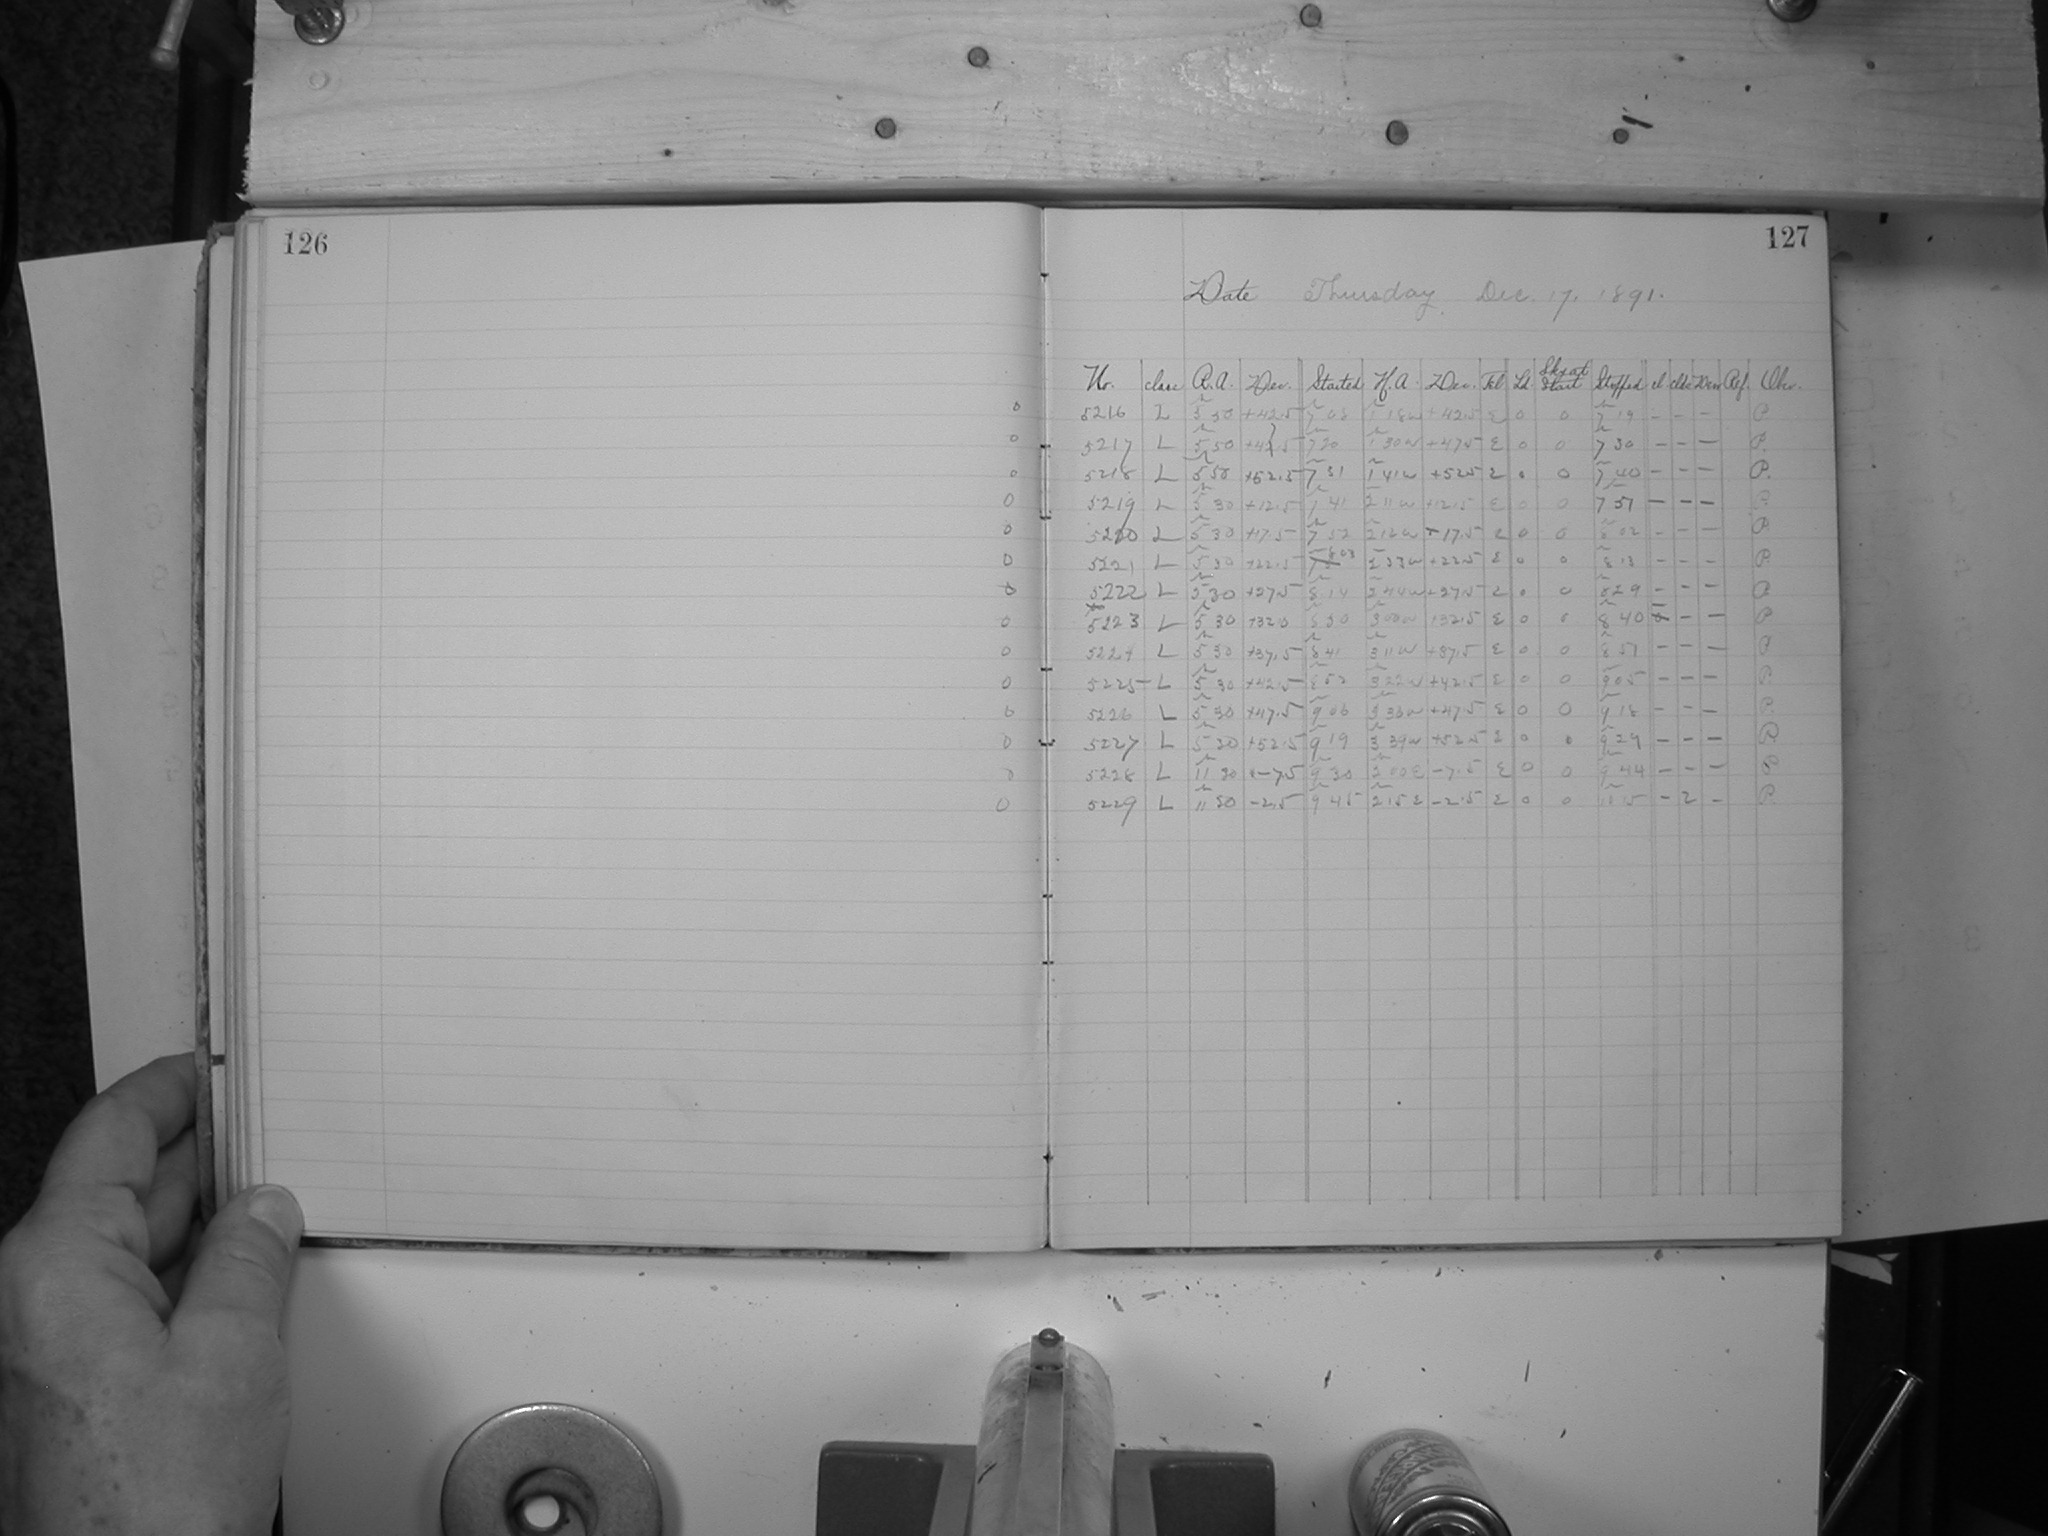 126
127
Date Thursday Dec. 17, 1891.
No. class R.A. Dec. Started H.A. Dec. Tel Ld. Sky at Start Stopped cl. clds Dew Ref. Obs.
0 5216 L 5 50 +42.5 7 08 1 18w +42.5 E 0 0 7 19 - - - P.
0 5217 L 5 50 7 20 1 30w +47.5 E 0 0 7 30 - - - P.
0 5218 L 5 50 +52.5 7 31 1 41w +52.5 E 0 0 7 40 - - - P.
0 5219 L 5 30 +12.5 7 41 2 11w +12.5 E 0 0 7 51 - - - P.
0 5220 L 5 30 +17.5 7 52 2 12w +17.5 E 0 0 8 02 - - - P.
0 5221 L 5 30 +22.5 8 03 2 33w +22.5 E 0 0 8 13 - - - P.
0 5222 L 5 30 +27.5 8 14 2 44w +27.5 E 0 0 8 29 - - - P.
0 5223 L 5 30 +32.0 8 30 3 00w +32.5 E 0 0 8 40 - - - P.
0 5224 L 5 30 +37.5 8 41 3 11w +37.5 E 0 0 8 51 - - - P.
0 5225 L 5 30 +42.5 8 52 3 22w +42.5 E 0 0 9 05 - - - P.
0 5226 L 5 30 +47.5 9 06 3 36w +47.5 E 0 0 9 18 - - - P.
0 5227 L 5 30 +52.5 9 19 3 39w +52.5 E 0 0 9 29 - - - P.
0 5228 L 11 30 -7.5 9 30 2 00E -7.5 E 0 0 9 44 - - - P.
0 5229 L 11 30 -2.5 9 45 2 15E -2.5 E 0 0 11 15 - 2 - P.